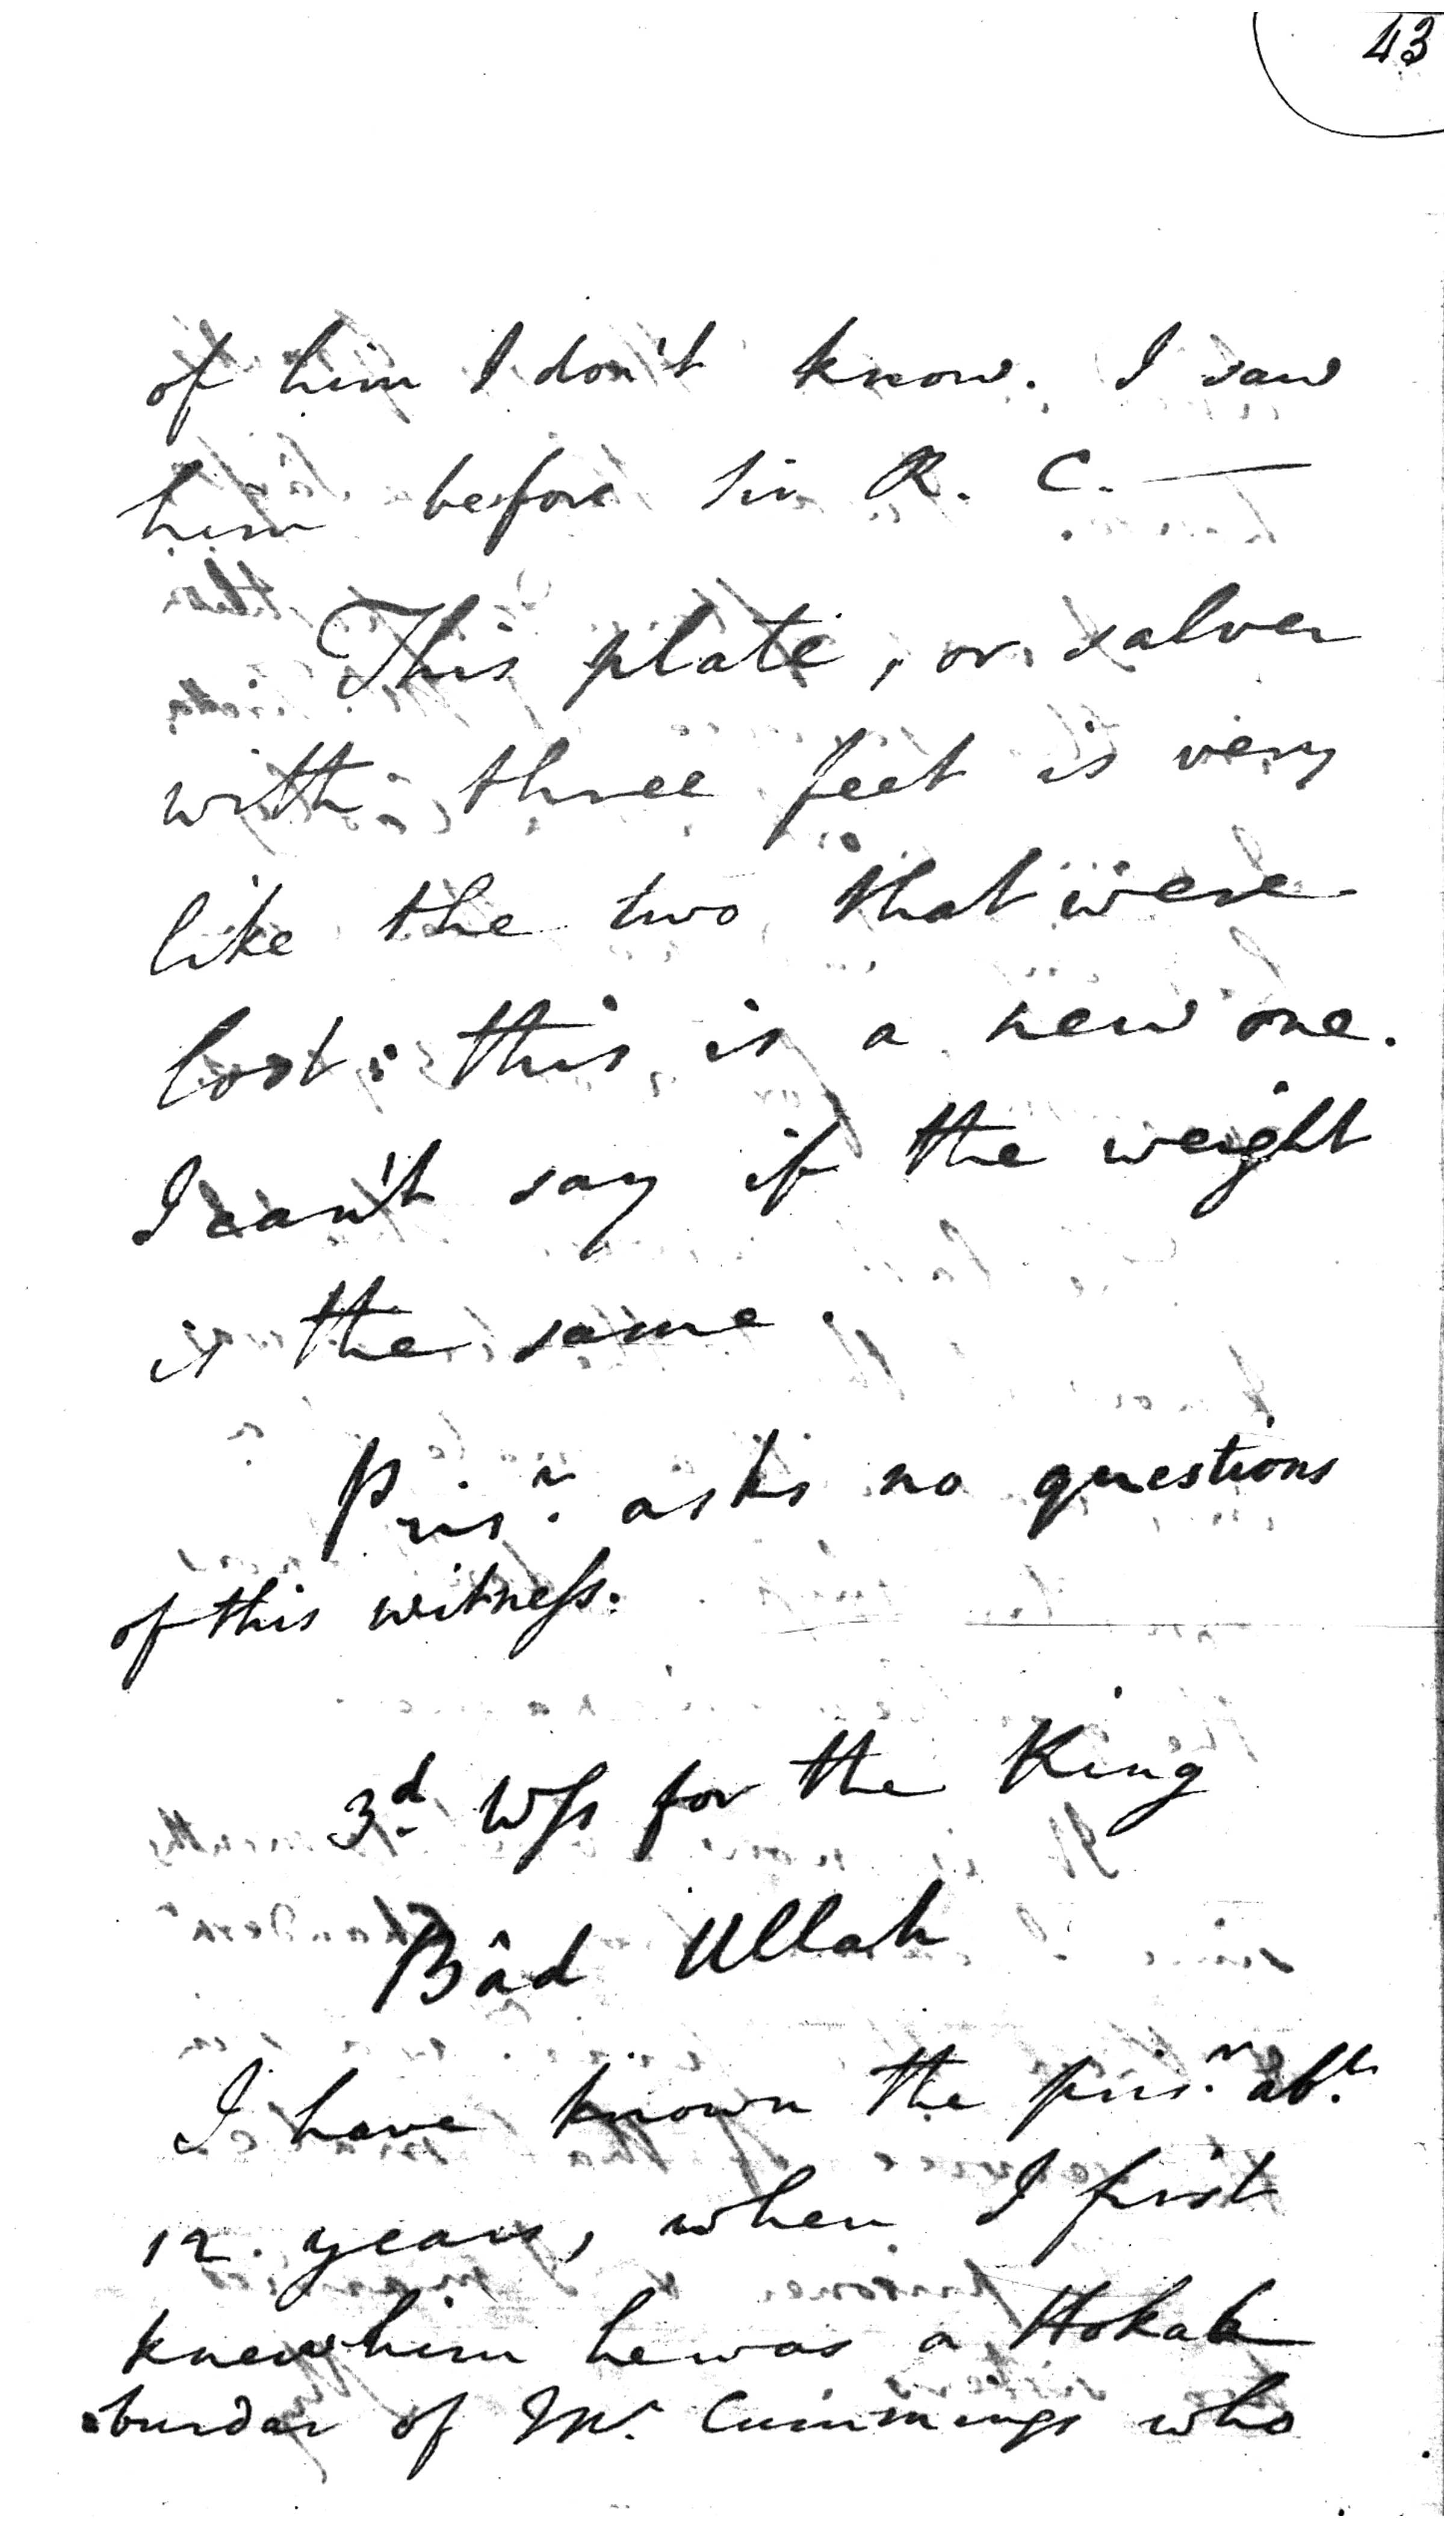 43
of him I don't know. I saw
him before Sir R. C. —
This plate, or salver
with three feet is very
like the two that were
lost: this is a new one.
I can't say if the weight
is the same.
Pris.r asks no questions
of this witneſs.
3.d Wſs for the King
Bâd Ullah
I have known the pris.r ab.t
12. years, when I first
knew him he was a Hokah
burdar of Mr. Cummings who